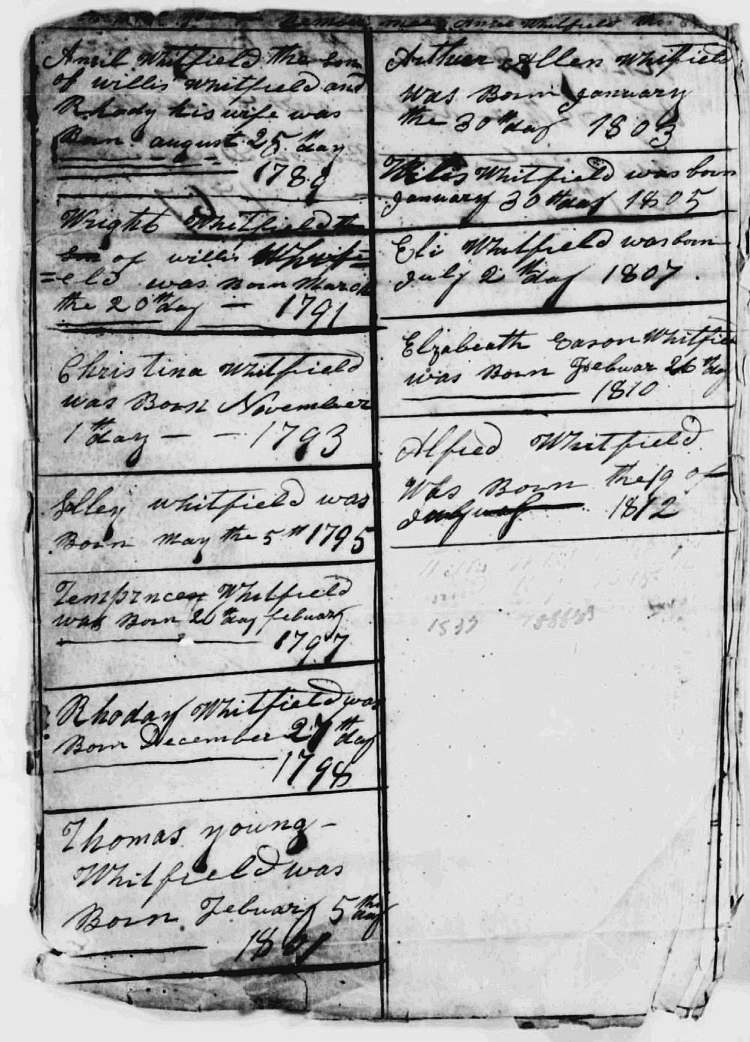 Anise Whitfield the
Ancil Whitfield the Son
of willis Whitfield and
Rhody his wife was
Born august 25th day
1788
Wright Whitfield the
son of willis Whitfi=
=eld was Born March
the 20th day – 1791
Christina Whitfield
was Born November
1th day – – 1793
Selley whitfield was
Born may the 5th 1795
Tempsncey Whitfield
was Born 20th day febuary
1797
Rhoday Whitfield was
Born December 27th day
1798
Thomas young –
Whitfield was
Born Febuary 5th day
1801
Arthur Allen Whitfield
was Born January
the 30th day 1803
Willis Whitfield was born
January 30th day 1805
Eli Whitfield was born
July 2th day 1807
Elzabeath Eason Whitfield
was Born Febuar 26th day
1810
Alfred Whitfield
Was Born the 19 of
1812